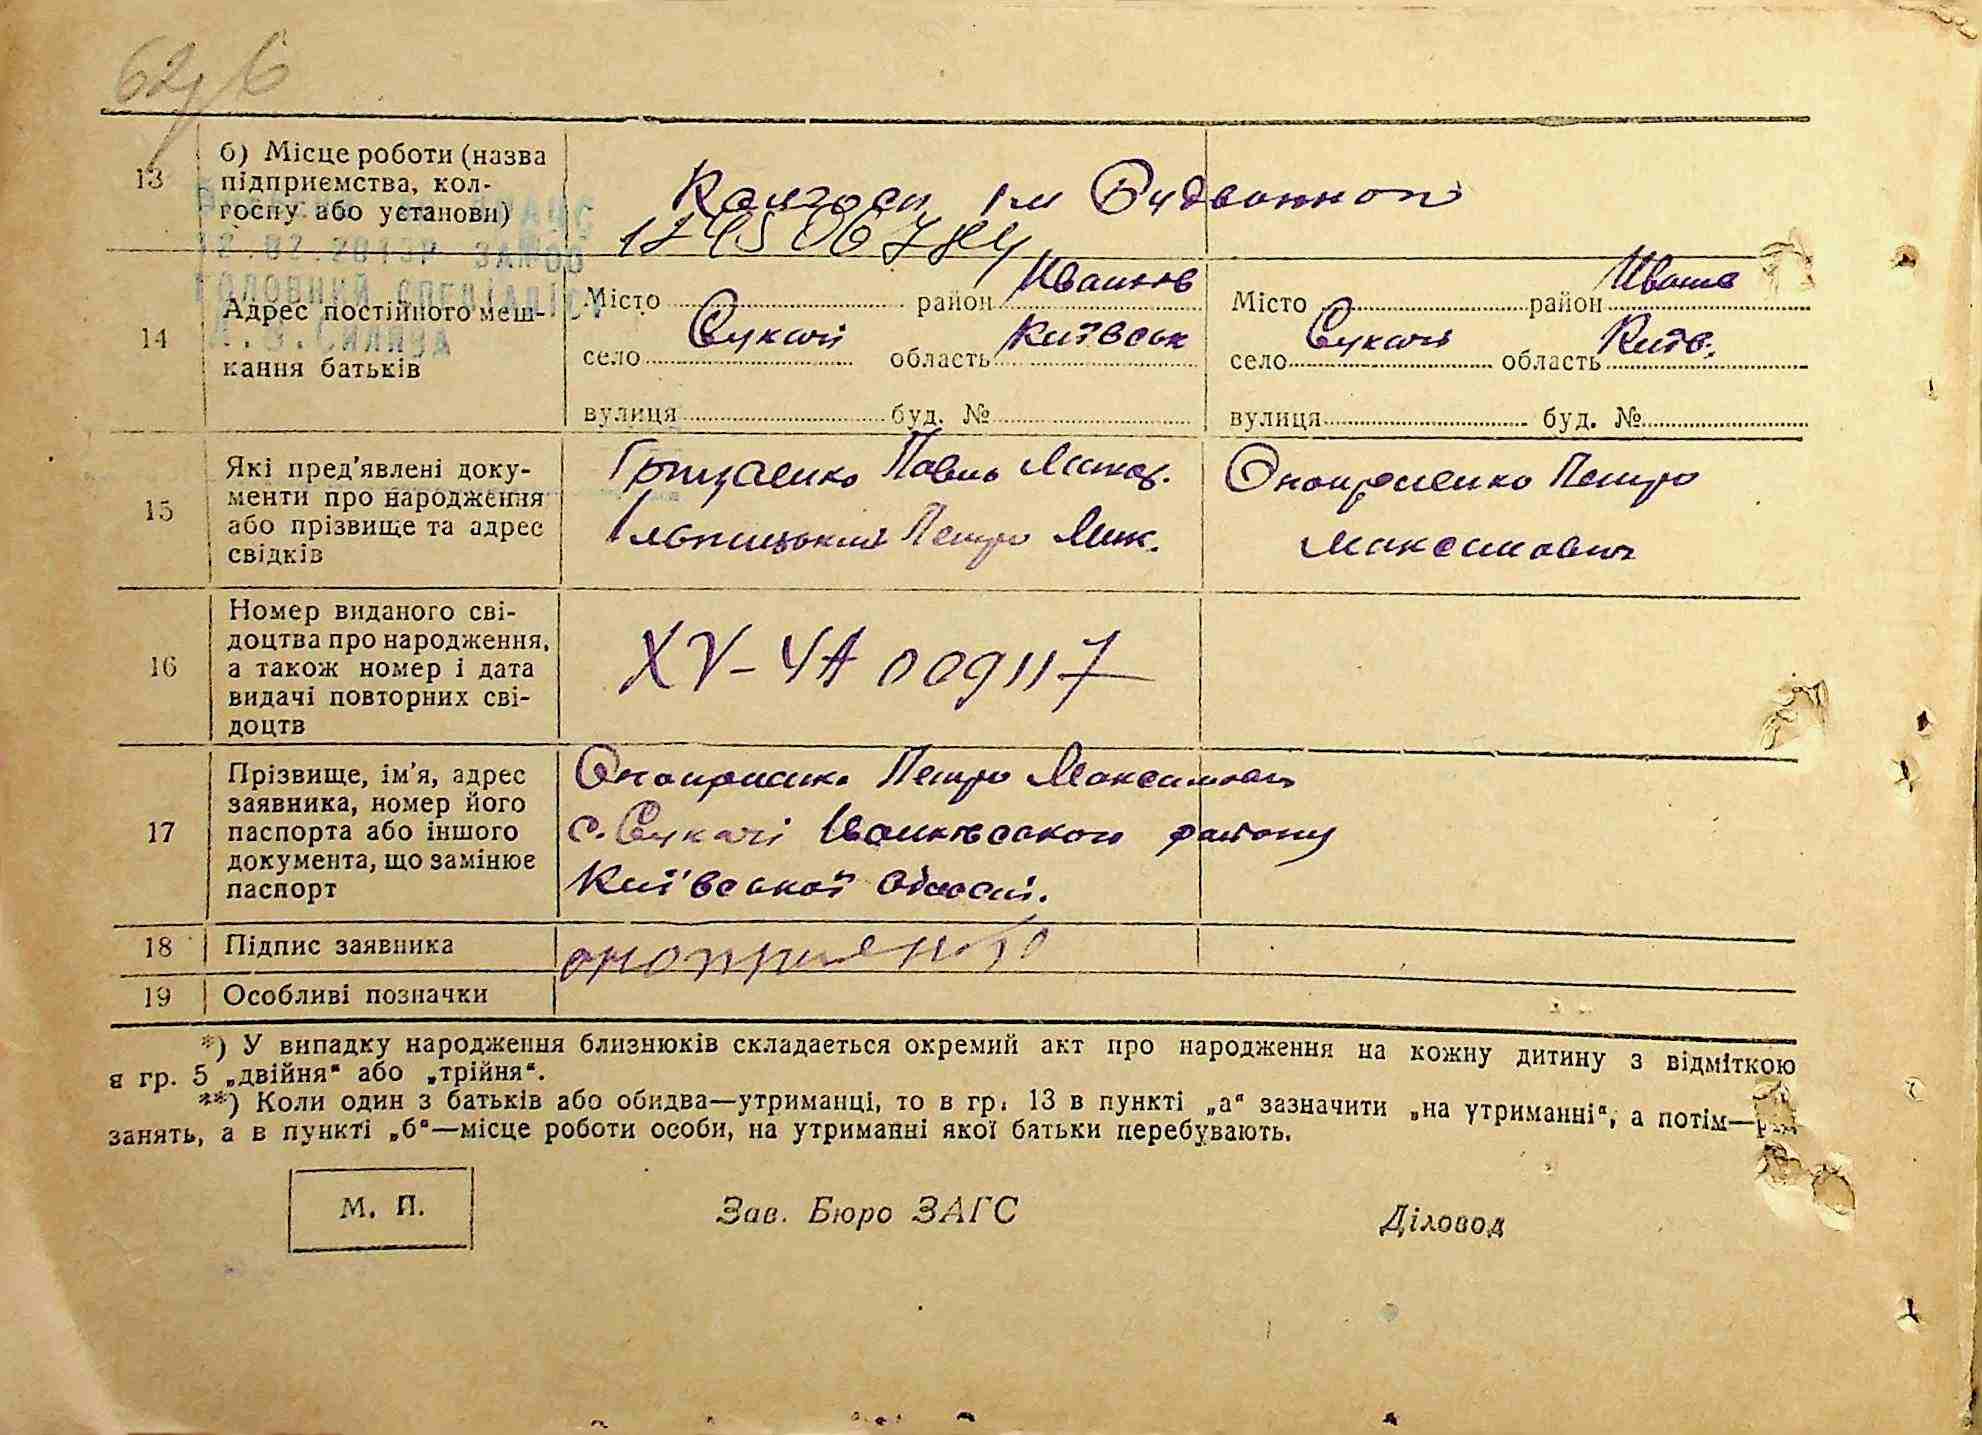 13
б) Місце роботи (назва
підприємства, кол-
госпу або установи)
Колгосп ім Будьонного
12.02.2013р
головний спеціаліст
14
Адрес постійного меш-
кання батьків
Місто район Іванків
село Сукачі область Київськ
вулиця буд. №
Місто район Іванк
село Сукачі область Київ.
вулиця буд. №
15
Які пред'явлені доку-
менти про народження
або прізвище та адрес
свідків
Грищенко Павло
Петро Мик.
Онопрієнко Петро
Максимович
16
Номер виданого сві-
доцтва про народження,
а також номер і дата
видачі повторних сві-
доцтв
ХУ-ЧА 009117
17
Прізвище, ім'я, адрес
заявника, номер його
паспорта або іншого
документа, що замінює
паспорт
Онопрієнко Петро Максимович
с. Сукачі Іванківського району
Київської області.
18
Підпис заявника
19
Особливі позначки
*) У випадку народження близнюків складається окремий акт про народження на кожну дитину з відміткою
в гр. 5 „двійня“ або „трійня“.
**) Коли один з батьків або обидва—утриманці, то в гр. 13 в пункті „а“ зазначити „на утриманні“, а потім—
занять, а в пункті „б“—місце роботи особи, на утриманні якої батьки перебувають.
М. П.
Зав. Бюро ЗАГС
Діловод